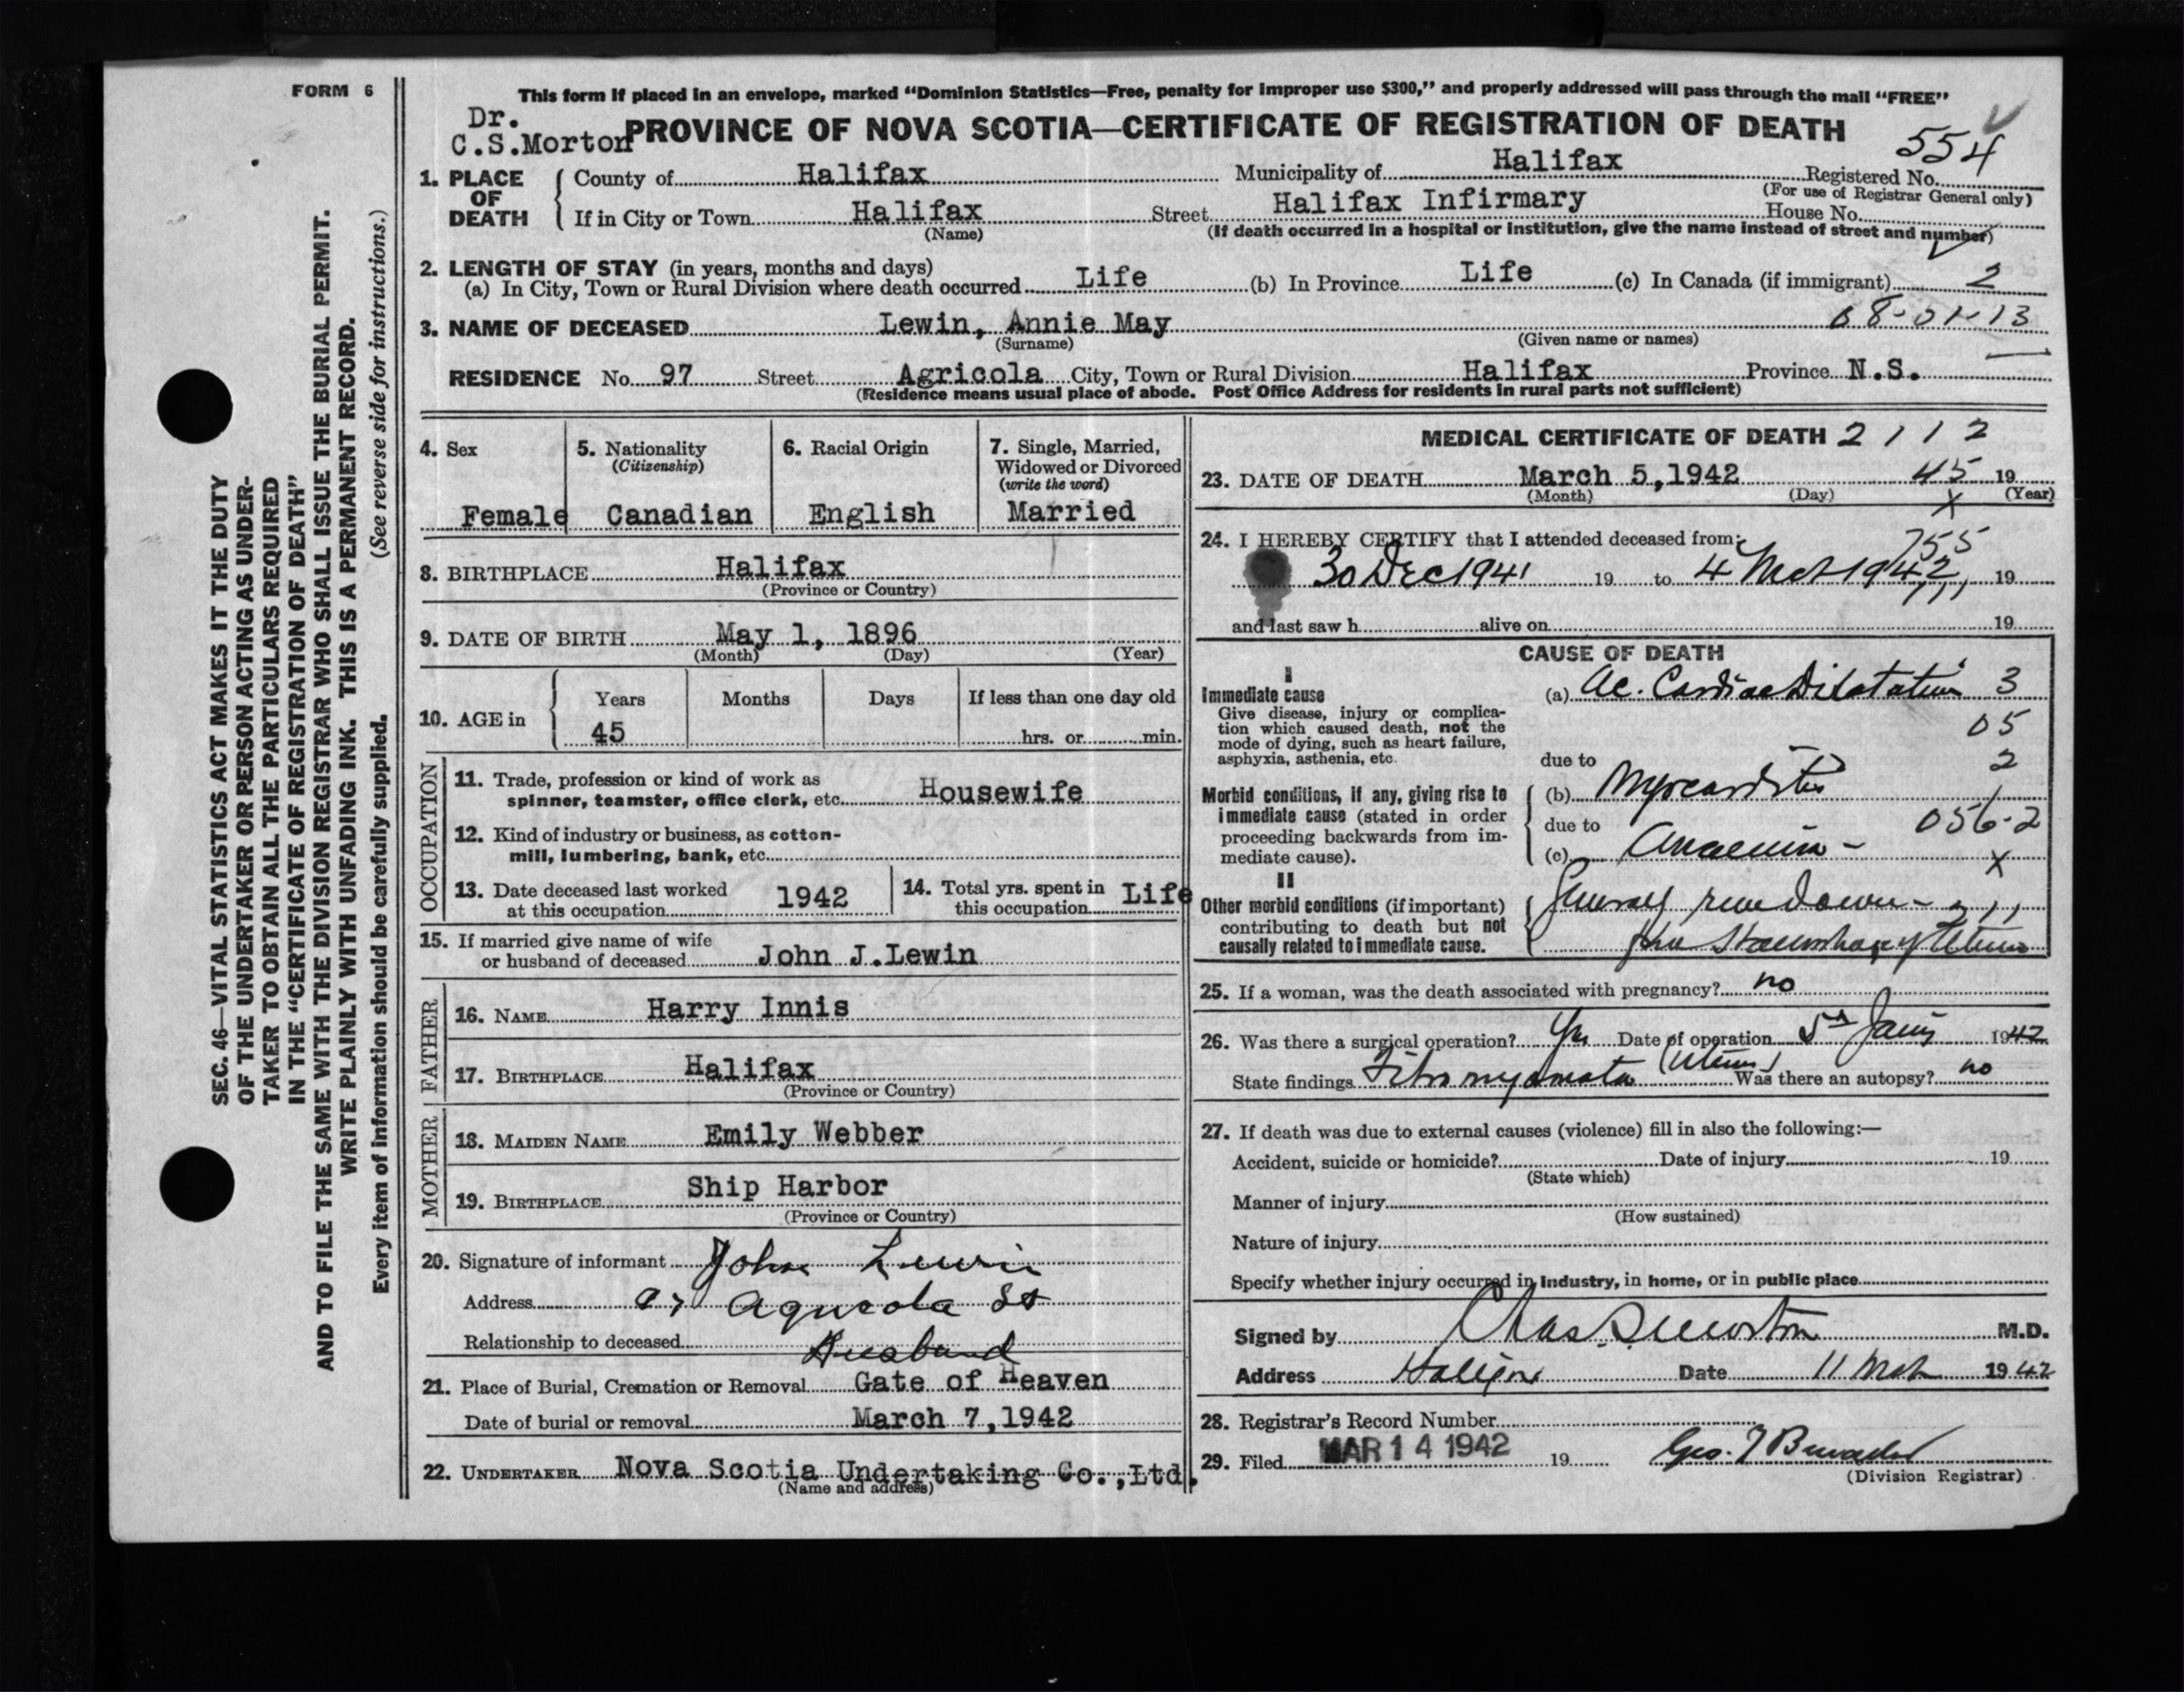 FORM 6
This form if placed in an envelope, marked “Dominion Statistics—Free, penalty for improper use $300,” and properly addressed will pass through the mail “FREE”
Dr.
C.S.Morton
PROVINCE OF NOVA SCOTIA—CERTIFICATE OF REGISTRATION OF DEATH
554
1. PLACE OF DEATH
County of Halifax Municipality of Halifax Registered No.
(For use of Registrar General only)
If in City or Town Halifax Street Halifax Infirmary House No.
(Name) (If death occurred in a hospital or institution, give the name instead of street and number)
2. LENGTH OF STAY (in years, months and days)
(a) In City, Town or Rural Division where death occurred Life (b) In Province Life (c) In Canada (if immigrant) 2
3. NAME OF DECEASED Lewin, Annie May 08-01-13
(Surname) (Given name or names)
RESIDENCE No. 97 Street Agricola City, Town or Rural Division Halifax Province N.S.
(Residence means usual place of abode. Post Office Address for residents in rural parts not sufficient)
4. Sex
Female
5. Nationality
(Citizenship)
Canadian
6. Racial Origin
English
7. Single, Married,
Widowed or Divorced
(write the word)
Married
8. BIRTHPLACE Halifax
(Province or Country)
9. DATE OF BIRTH May 1, 1896
(Month) (Day) (Year)
10. AGE in
Years Months Days If less than one day old
45 hrs. or min.
OCCUPATION
11. Trade, profession or kind of work as
spinner, teamster, office clerk, etc. Housewife
12. Kind of industry or business, as cotton-
mill, lumbering, bank, etc.
13. Date deceased last worked
at this occupation 1942
14. Total yrs. spent in
this occupation Life
15. If married give name of wife
or husband of deceased John J.Lewin
FATHER
16. NAME Harry Innis
17. BIRTHPLACE Halifax
(Province or Country)
MOTHER
18. MAIDEN NAME Emily Webber
19. BIRTHPLACE Ship Harbor
(Province or Country)
20. Signature of informant John Lewin
Address 97 Agricola St
Relationship to deceased Husband
21. Place of Burial, Cremation or Removal Gate of Heaven
Date of burial or removal March 7, 1942
22. UNDERTAKER Nova Scotia Undertaking Co.,Ltd.
(Name and address)
MEDICAL CERTIFICATE OF DEATH 2112
23. DATE OF DEATH March 5,1942 45 19
(Month) (Day) (Year)
X
24. I HEREBY CERTIFY that I attended deceased from:—
755
30 Dec 1941 19 to 4 Mch 1942 19
and last saw h alive on 19
CAUSE OF DEATH
I
Immediate cause
Give disease, injury or complica-
tion which caused death, not the
mode of dying, such as heart failure,
asphyxia, asthenia, etc.
(a) Ac. Cardiac Dilatation 3
05
due to
2
Morbid conditions, if any, giving rise to
immediate cause (stated in order
proceeding backwards from im-
mediate cause).
(b) Myocarditis
due to
056-2
(c) Anaemia -
X
II
Other morbid conditions (if important)
contributing to death but not
causally related to immediate cause.
General run down -
Uterus
25. If a woman, was the death associated with pregnancy? no
26. Was there a surgical operation? Yes Date of operation 5th Jany 1942
State findings Fibromyomata (Uterus) Was there an autopsy? no
27. If death was due to external causes (violence) fill in also the following:—
Accident, suicide or homicide? Date of injury 19
(State which)
Manner of injury
(How sustained)
Nature of injury
Specify whether injury occurred in industry, in home, or in public place
Signed by Chas S Morton M.D.
Address Halifax Date 11 Mch 1942
28. Registrar's Record Number
29. Filed MAR 14 1942 19 Geo.
(Division Registrar)
SEC. 46—VITAL STATISTICS ACT MAKES IT THE DUTY
OF THE UNDERTAKER OR PERSON ACTING AS UNDER-
TAKER TO OBTAIN ALL THE PARTICULARS REQUIRED
IN THE “CERTIFICATE OF REGISTRATION OF DEATH”
AND TO FILE THE SAME WITH THE DIVISION REGISTRAR WHO SHALL ISSUE THE BURIAL PERMIT.
WRITE PLAINLY WITH UNFADING INK. THIS IS A PERMANENT RECORD.
Every item of information should be carefully supplied. (See reverse side for instructions.)